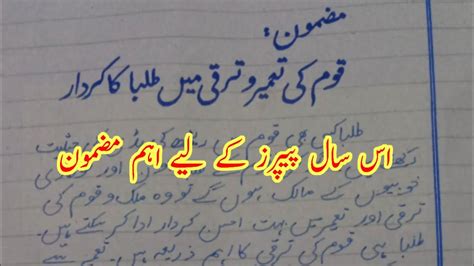 مضمون:
قوم کی تعمیر و ترقی میں طلبا کا کردار
طلبا کسی بھی قوم
اس سال پیپرز کے لیے اہم مضمون
خوبیوں کے مالک ہوں گے تو وہ ملک و قوم کی
ترقی اور تعمیر میں بہت احسن کردار ادا کر سکتے ہیں.
طلبا ہی قوم کی ترقی کا اہم ذریعہ ہیں. تعمیر سے